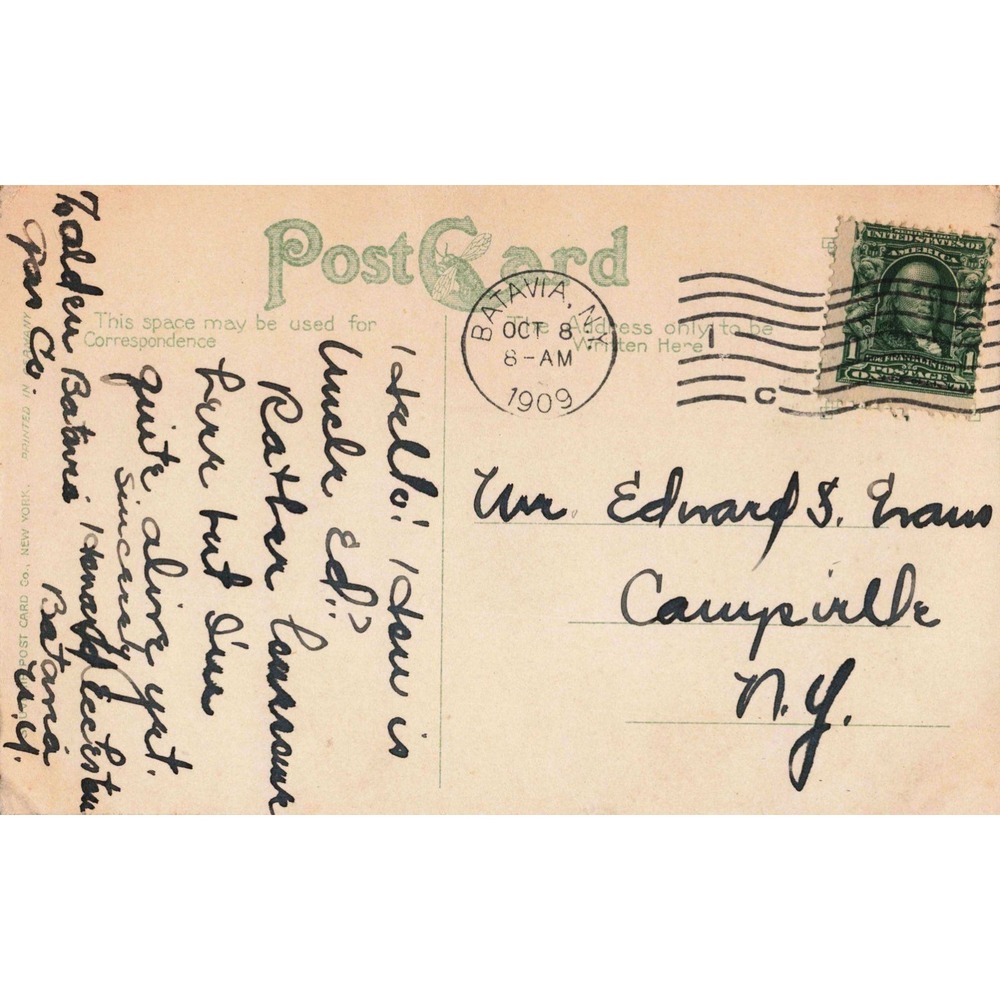 Post Card
This space may be used for
Correspondence
The Address only to be
Written Here
BATAVIA, N.Y.
OCT 8
8-AM
1909
1
C
SERIES 1902
UNITED STATES OF
AMERICA
1706 FRANKLIN 1790
POSTAGE
1 ONE CENT 1
Mr. Edward S. Evans
Campville
N.Y.
Hello! How is
Uncle Ed??
Rather lonesome
here but I'm
quite alive yet.
Sincerely
Batavia
N.Y.
Batavia
Gas Co.
POST CARD CO., NEW YORK.
PRINTED IN GERMANY